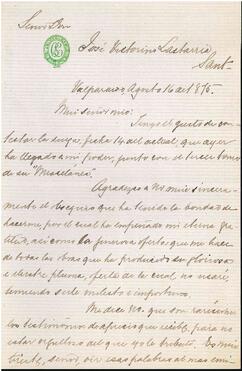 Señor Don
José Victorino Lastarria
Sant.
Valparaiso, Agosto 16 de 1875.
Mui señor mio:
Tengo el gusto de con-
testar la suya, fecha 14 del actual, que ayer
ha llegado a mi poder, junto con el tercer tomo
de su "Miscelánea".
Agradezco a Ud. mui sincera-
mente el obsequio que ha tenido la bondad de
hacerme, por el cual ha empeñado mi eterna gra-
titud, así como la jenerosa oferta que me hace
de todas las obras que ha producido su gloriosa
e ilustre pluma, oferta de la cual no usaré,
temiendo serle molesto e importuno.
Me dice Ud. que son rarísimos
los testimonios de aprecio que recibe, para no
estar orgulloso del que yo le tributo. Es mui
triste, señor, oir esas palabras al mas emi-